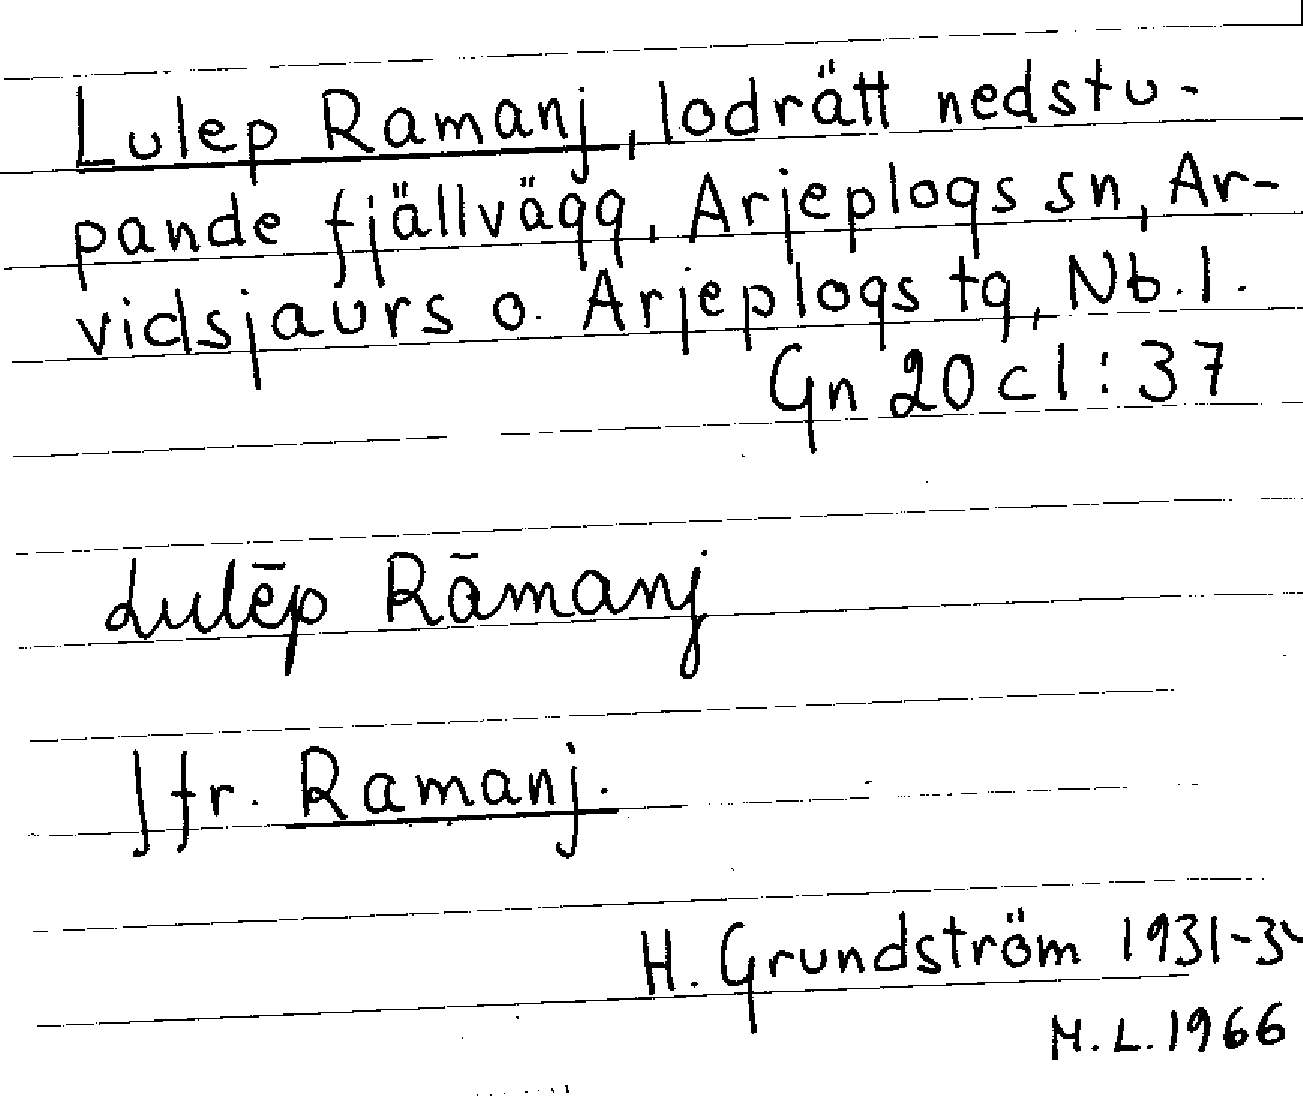 Lulep Ramanj, lodrätt nedstu-
pande fjällvägg, Arjeplogs sn, Ar-
vidsjaurs o. Arjeplogs tg, Nb. l.
Gn 20 c 1 : 37
Lulēp Rāmanj
Jfr. Ramanj.
H. Grundström
M.L. 1966